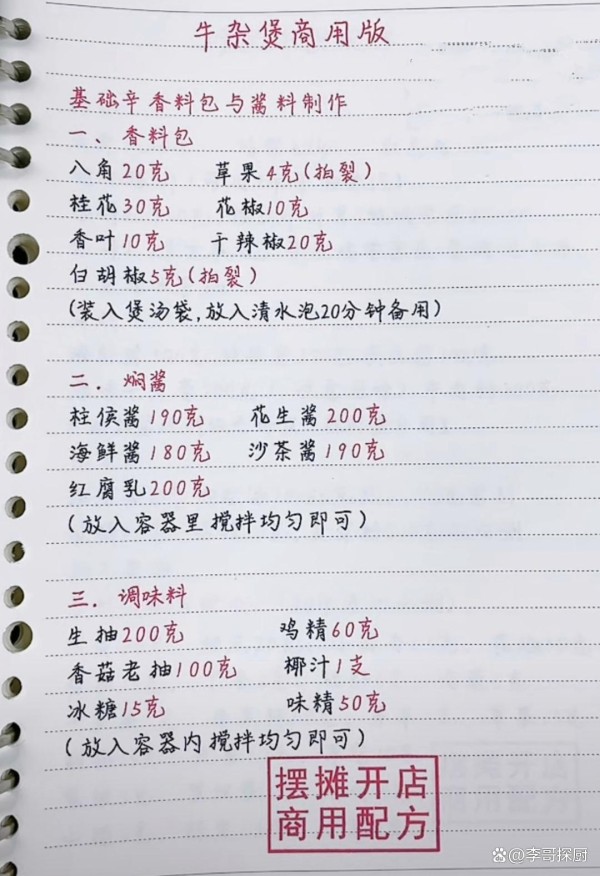 牛杂煲商用版
基础辛香料包与酱料制作
一、香料包
八角20克 草果4克(拍裂)
桂花30克 花椒10克
香叶10克 干辣椒20克
白胡椒5克(拍裂)
(装入煲汤袋,放入清水泡20分钟备用)
二.焖酱
柱侯酱190克 花生酱200克
海鲜酱180克 沙茶酱190克
红腐乳200克
(放入容器里搅拌均匀即可)
三.调味料
生抽200克 鸡精60克
香菇老抽100克 椰汁1支
冰糖15克 味精50克
(放入容器内搅拌均匀即可)
摆摊开店
商用配方
李哥探厨